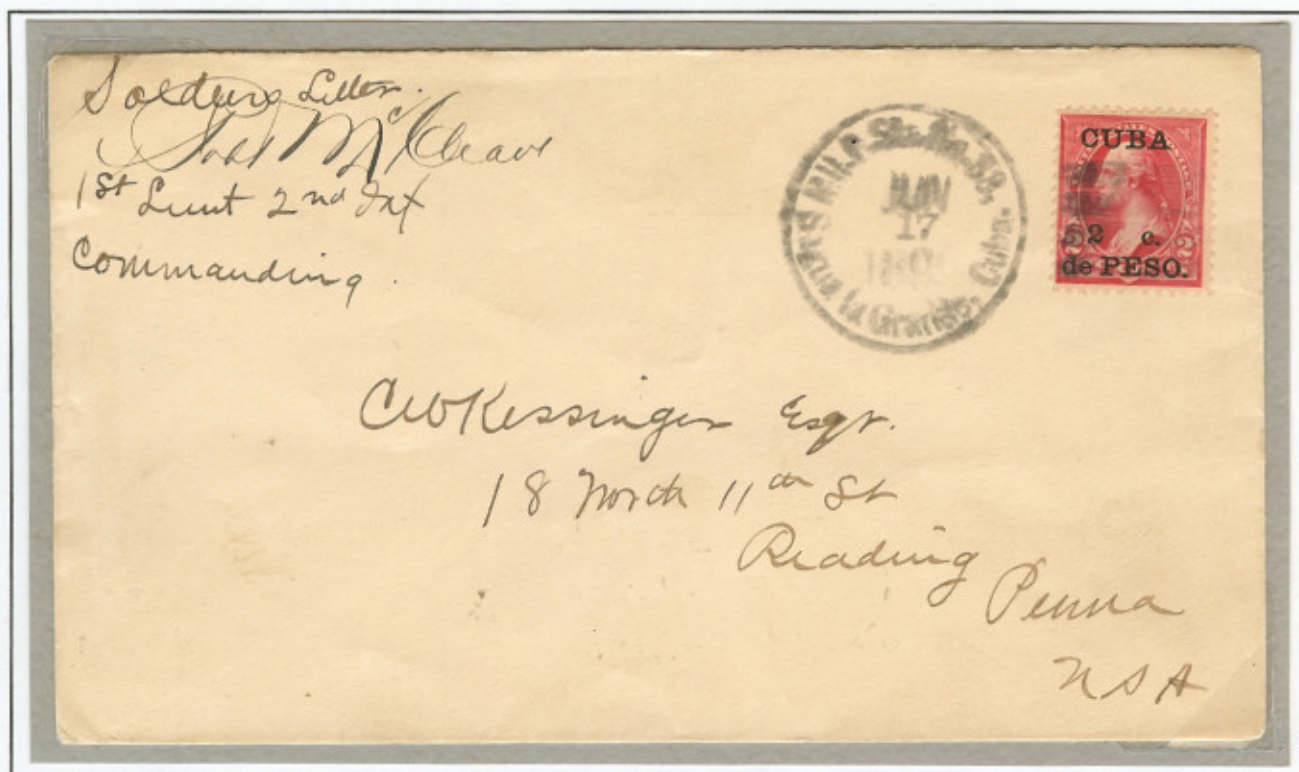 Soldiers Letter.
Robt McCleave
1st Lieut 2nd Inf
Commanding.
MIL. P. Sta. No. 33,
Sagua la Grande, Cuba.
JUN
17
CUBA
2 c.
de PESO.
2
CWKessinger Esqr.
18 North 11th St
Reading
Penna
USA